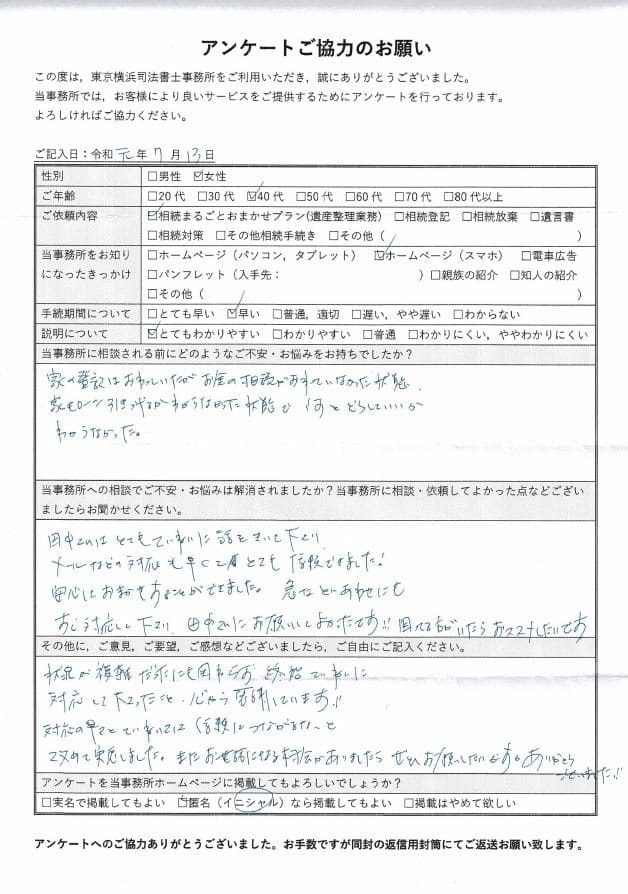 アンケートご協力のお願い
この度は，東京横浜司法書士事務所をご利用いただき，誠にありがとうございました。
当事務所では，お客様により良いサービスをご提供するためにアンケートを行っております。
よろしければご協力ください。
ご記入日：令和 元 年 7 月 13 日
性別 □男性 ☑女性
ご年齢 □20代 □30代 ☑40代 □50代 □60代 □70代 □80代以上
ご依頼内容 ☑相続まるごとおまかせプラン(遺産整理業務) □相続登記 □相続放棄 □遺言書
□相続対策 □その他相続手続き □その他（ ）
当事務所をお知り □ホームページ（パソコン，タブレット） ☑ホームページ（スマホ） □電車広告
になったきっかけ □パンフレット（入手先： ）□親族の紹介 □知人の紹介
□その他（ ）
手続期間について □とても早い ☑早い □普通，適切 □遅い，やや遅い □わからない
説明について ☑とてもわかりやすい □わかりやすい □普通 □わかりにくい，ややわかりにくい
当事務所に相談される前にどのようなご不安・お悩みをお持ちでしたか？
家の登記はおわっていたがお金の相談がおわっていなかった状態．
家もローン引きつげるかわからなかった状態で どうしていいか
わからなかった。
当事務所への相談でご不安・お悩みは解消されましたか？当事務所に相談・依頼してよかった点などござい
ましたらお聞かせください。
田中さんはとてもていねいに話をきいて下さり
メールなどの対応も早く とても信頼できました！
安心しておまかせすることができました。急なといあわせにも
対応して下さり，田中さんにお願いしてよかったです!! 困ってる がいたらおススメしたいです
その他に，ご意見，ご要望，ご感想などございましたら，ご自由にご記入ください。
状況が複雑だったにも関わらず 終始ていねいに
対応して下さったこと，心から感謝しています!!
対応の早さとていねいさは信頼につながるな，と
改めて実感しました。またお世話になる機会がありましたらぜひお願いしたいです ありがとう
ございました!!
アンケートを当事務所ホームページに掲載してもよろしいでしょうか？
□実名で掲載してもよい ☑匿名（イニシャル）なら掲載してもよい □掲載はやめて欲しい
アンケートへのご協力ありがとうございました。お手数ですが同封の返信用封筒にてご返送お願い致します。